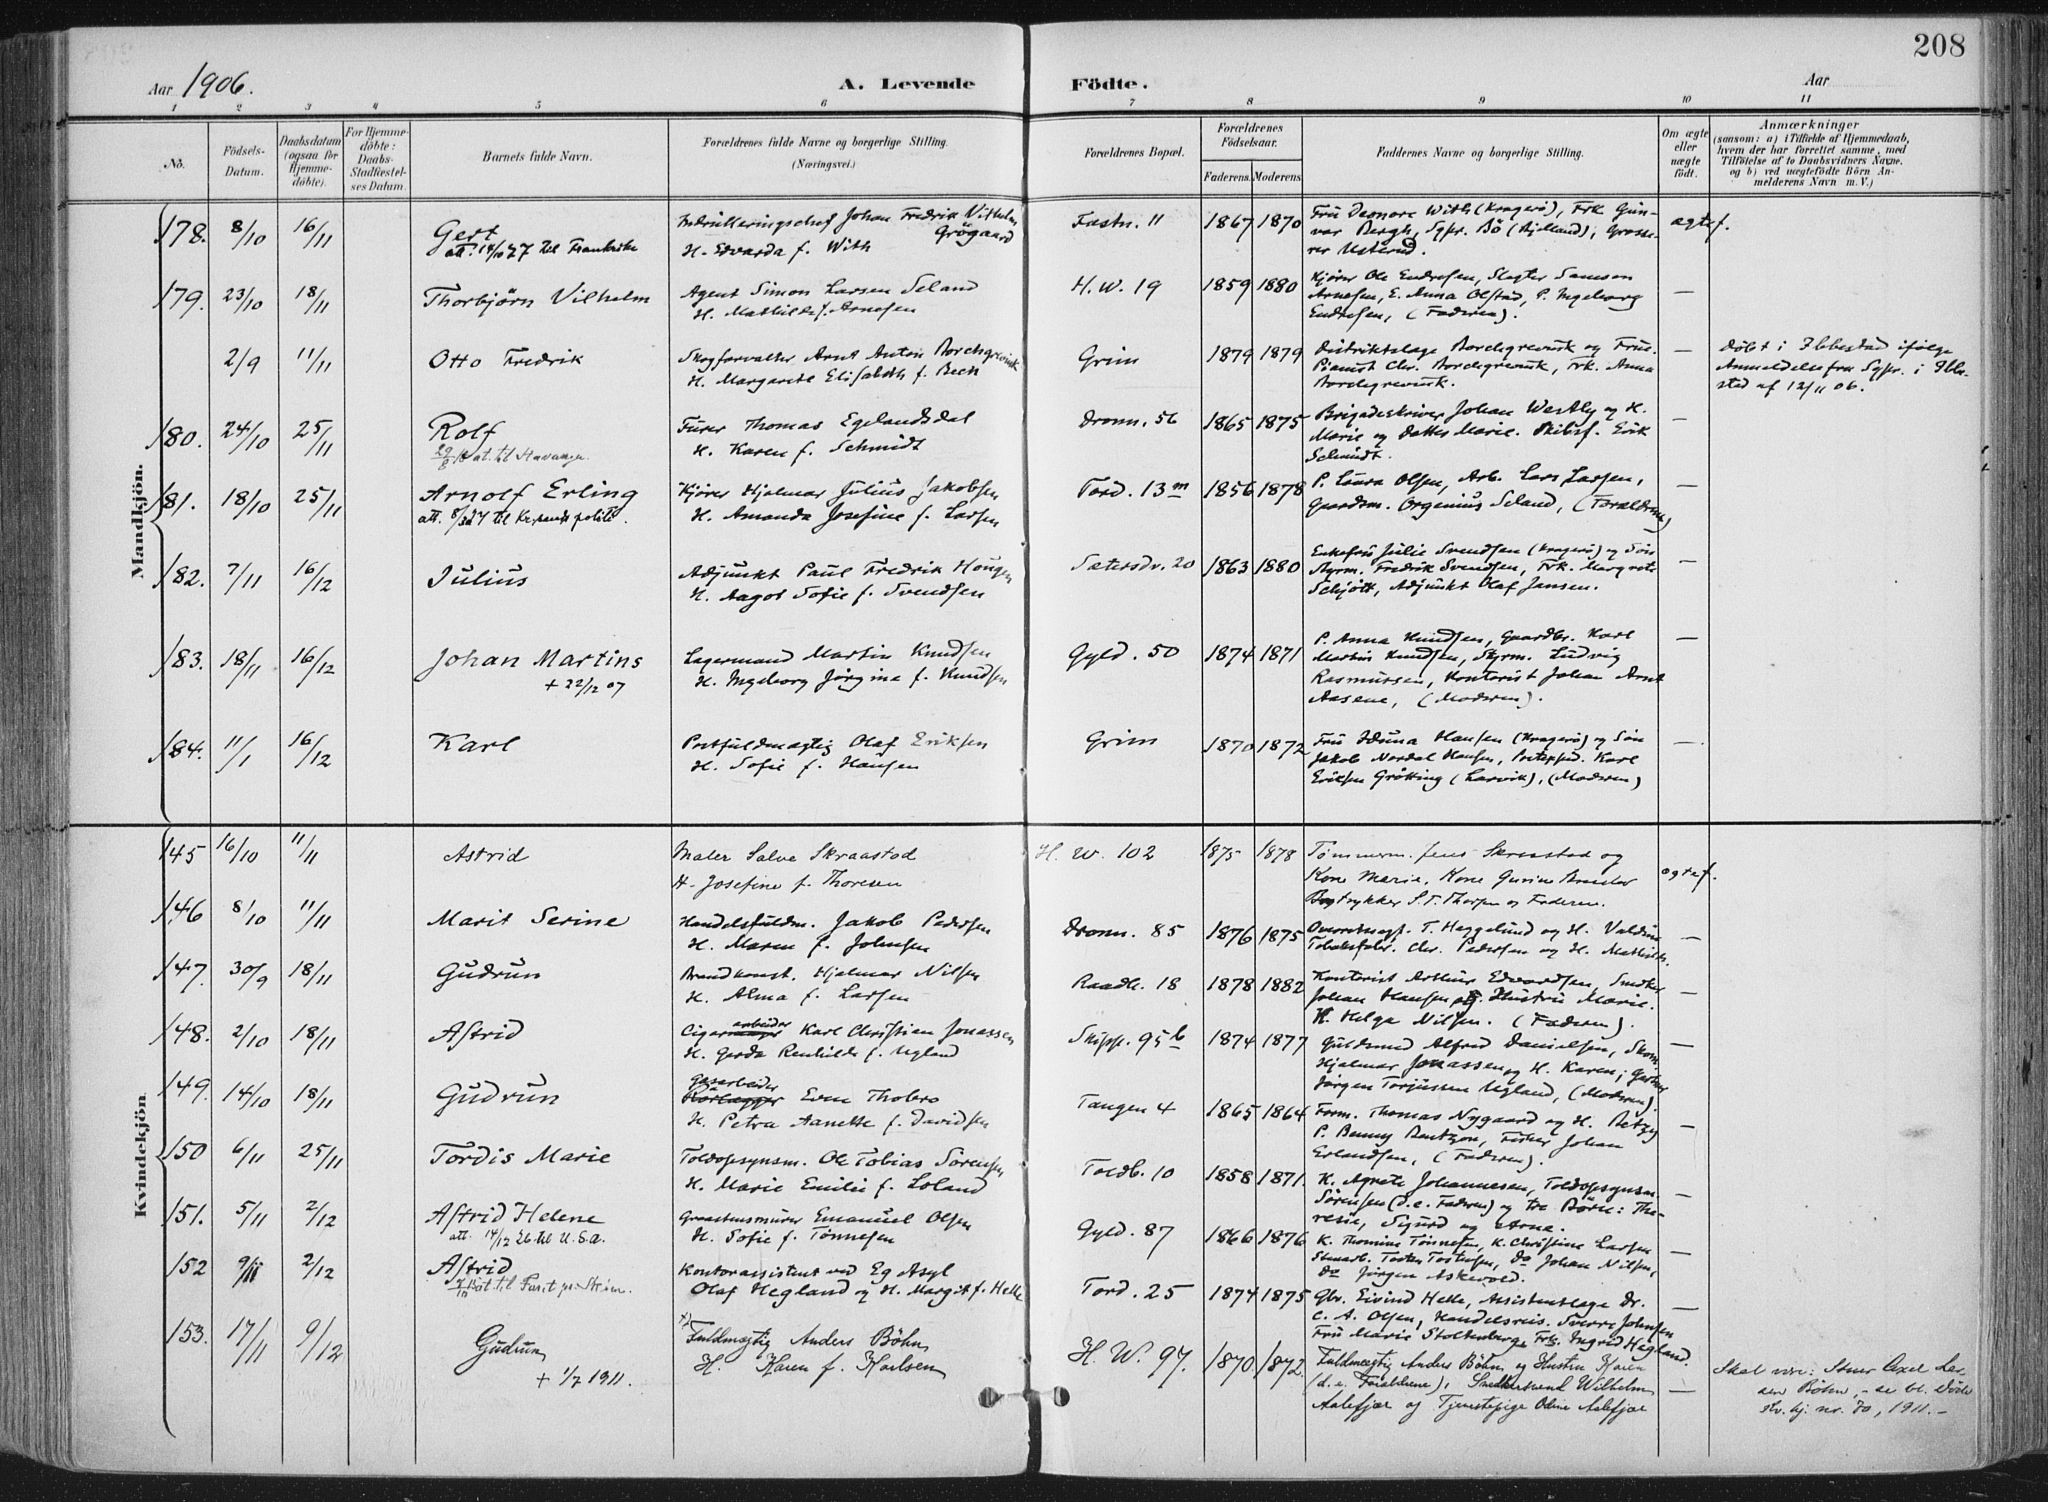 208
Aar 1906.
A. Levende
Födte.
Aar
1 2 3 4 5 6 7 8 9 10 11
No.
Födsels-
Datum.
Daabsdatum
(ogsaa for
Hjemme-
döbte).
For Hjemme-
döbte:
Daabs-
Stadfæstel-
ses Datum.
Barnets fulde Navn.
Forældrenes fulde Navne og borgerlige Stilling.
(Næringsvei.)
Forældrenes Bopæl.
Forældrenes
Födselsaar.
Faderens. Moderens.
Faddernes Navne og borgerlige Stilling.
Om ægte
eller
uægte
født.
Anmærkninger
(saasom: a) i Tilfælde af Hjemmedaab,
hvem der har forrettet samme, med
Tilföielse af to Daabsvidners Navne.
og b) ved uægtefödte Börn An-
melderens Navn m. V.)
Mandkjön.
178. 8/10 16/11 Gert
att. 14/10 27 til Frankrike
Johan Fredrik Vilhelm
Grögaard
H. Edvarda f. With
Fæstn. 11 1867 1870
Fru Leonore With (Kragerö), Frk. Gun-
var Bergh, Sgpr. Bö (Bjelland), Grosse-
rer Usterud.
ægtef.
179. 23/10 18/11 Thorbjörn Vilhelm
Agent Simon Larsen Seland
H. Mathilde f. Arnesen
H. W. 19 1859 1880
Kjörer Ole Endresen, Slagter Samson
Arnesen, E. Anna Olstad, P. Ingeborg
Endresen, (Faderen).
—
2/9 11/11 Otto Fredrik
Skogforvalter Arnt Anton Borchgrevink
H. Margarete Elisabeth f. Bech
Grim 1879 1879
Distriktslæge Borchgrevink og Frue.
Pianist Chr. Borchgrevink, Frk. Anna
Borchgrevink.
—
Döbt i Ibbestad ifølge
Anmeldelse fra Sgpr. i Ibbe-
stad af 12/11 06.
180. 24/10 25/11 Rolf
Furer Thomas Egelandsdal
H. Karen f. Schmidt
Dronn. 56 1865 1875
Brigadeskriver Johan Westly og H.
Marie og Datter Marie. Skibsf. Erik
Schmidt.
—
181. 18/10 25/11 Arnolf Erling
Kjörer Hjalmar Julius Jakobsen
H. Amanda Josefine f. Larsen
Tord. 13 m 1856 1878
P. Laura Olsen, Arb. Lars Larsen,
Gaardm. Orgenius Seland, (Forældrene)
—
182. 7/11 16/12 Julius
Adjunkt Paul Fredrik Hougen
H. Aagot Sofie f. Svendsen
Sætersdv. 20 1863 1880
Enkefru Julie Svendsen (Kragerö) og Sön
Styrm. Fredrik Svendsen, Frk. Margrete
Schjött, Adjunkt Olaf Jansen.
—
183. 18/11 16/12 Johan Martins
+ 22/12 07
Lagermand Martin Knudsen
H. Ingeborg Jörgine f. Knudsen
Gyld. 50 1874 1871
P. Anna Knudsen, Gaardbr. Karl
Martin Knudsen, Styrm. Ludvig
Rasmussen, Kontorist Johan Arnt
Aasene, (Moderen).
—
184. 11/1 16/12 Karl
Postfuldmægtig Olaf Eriksen
H. Sofie f. Hansen
Grim 1870 1872
Fru Iduna Hansen (Kragerö) og Sön
Jakob Nordal Hansen, Postexped. Karl
Eriksen Grötting (Larvik), (Moderen)
—
Kvindekjön.
145 16/10 11/11 Astrid
Maler Salve Skraastad
H. Josefine f. Thoresen
H. W. 102 1875 1878
Tømmerm. Jens Skraastad og
Kone Marie, Kone Gurine
Bogtrykker S. T. Thorsen og Faderen.
ægtef.
146 8/10 11/11 Marit Serine
Handelsfuldm. Jakob Pedersen
H. Maren f. Johnsen
Dronn. 85 1876 1875
T. Heggelund og H.
Chr. Pedersen og H. Mathilde.
—
147. 30/9 18/11 Gudrun
Brandkonst. Hjalmar Nilsen
H. Alma f. Larsen
Raadh. 18 1878 1882
Kontorist Arthur Edvardsen, Smed
Johan Hansen og Hustru Marie.
K. Helga Nilsen. (Faderen).
—
148. 2/10 18/11 Astrid
Cigararbeider Karl Christian Jonassen
H. Gerda f. Ugland
Skipp. 95 b 1874 1877
Guldsmed Alfred Danielsen, Skom.
Hjalmar Jonassen og H. Karen; Gartner
Jörgen Torjussen Ugland, (Moderen).
—
149. 14/10 18/11 Gudrun
Gasarbeider
Rörlægger Even Thobro
H. Petra Aanette f. Davidsen
Tangen 4 1865 1864
Form. Thomas Nygaard og H. Betzy
P. Benny Bentzon, Fisker Johan
Erlandsen, (Faderen).
—
150 6/11 25/11 Tordis Marie
Toldopsynsm. Ole Tobias Sörensen
H. Marie Emilie f. Loland
Toldb. 10 1858 1871.
K. Agnete Johannesen, Toldopsynsm.
Sörensen (d. e. Faderen) og tre Börn: The-
resie, Sigurd og Arne.
—
151. 5/11 2/12 Astrid Helene
att. 14/12 26 til U.S.A.
Graastensmurer Emanuel Olsen
H. Sofie f. Tönnesen
Gyld. 87 1866 1876
K. Thomine Tönnesen, K. Christine Larsen
Stenarb. Tosten Tostensen, Do Johan Nilsen,
Do Jörgen Askevold.
—
152 9/11 2/12 Astrid
Kontorassistent ved Eg Asyl
Olaf Hegland og H. Margit f. Helle
Tord. 25 1874 1875
Gbr. Eivind Helle, Assistentlæge Dr.
C. A. Olsen, Handelsreis. Sverre Johnsen
Fru Marie Stoltenberg, Frk. Ingrid Hegland.
—
153. 17/11 9/12 Gudrun
+ 1/7 1911.
Fuldmægtig Anders Böhn
H. Karen f. Karlsen
H. W. 97. 1870 1872.
Fuldmægtig Anders Böhn og Hustru Karen
(d. e. Forældrene), Wilhelm
Aalefjær og Tjenestepige Oline Aalefjær
—
Skal være: Einar Axel La-
Böhn, – se bl. Döde
nr. 70, 1911. –